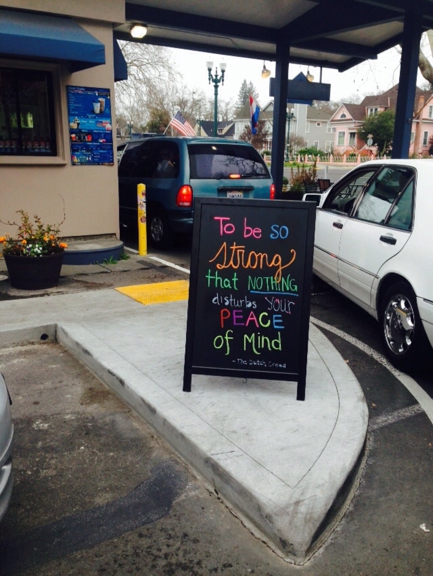 To be so
strong
that NOTHING
disturbs YOUR
PEACE
of Mind
- The Dutch Creed